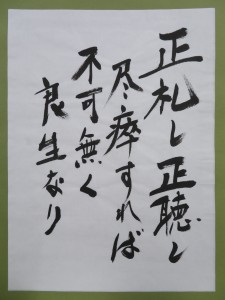 正札し正聴し
尽瘁すれば
不可無く
良生なり